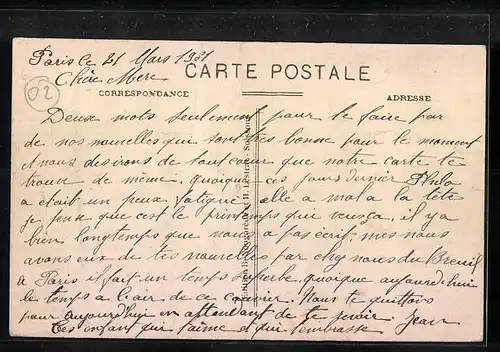 Paris le 21 Mars 1931
Chère Mère
CARTE POSTALE
CORRESPONDANCE
ADRESSE
02
Deux mots seulement pour te faire par
de nos nouvelles qui sont très bonne pour le moment
et nous desirons de tout cœur que notre carte te
trouve de même. quoique ces jours dernier
a était un peux fatigué elle a mal a la tête
je peux que c'est le printemps qui veut ça, il y a
bien longtemps que nous a pas écrit, mes nous
avons eux de tes nouvelles par chez nous du Breuil
a Paris il fait un temps superbe quoique aujourd'hui
le temps a l'air de ce couvrir. Nous te quittons
pour aujourd'hui en attendant de te revoir. Jean
Tes enfant qui t'aime et qui t'embrasse